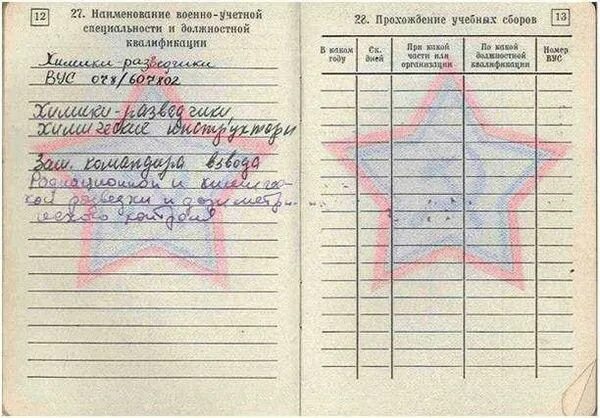 12
27. Наименование военно-учетной
специальности и должностной
квалификации
Химики разведчики
ВУС 078/607802
Химики-разведчики,
Химические инструкторы
Зам. командира взвода
Радиационной и химичес-
кой разведки и дозиметри-
ческого контроля
28. Прохождение учебных сборов
13
В каком году
Ск. дней
При какой части или организации
По какой должностной квалификации
Номер ВУС